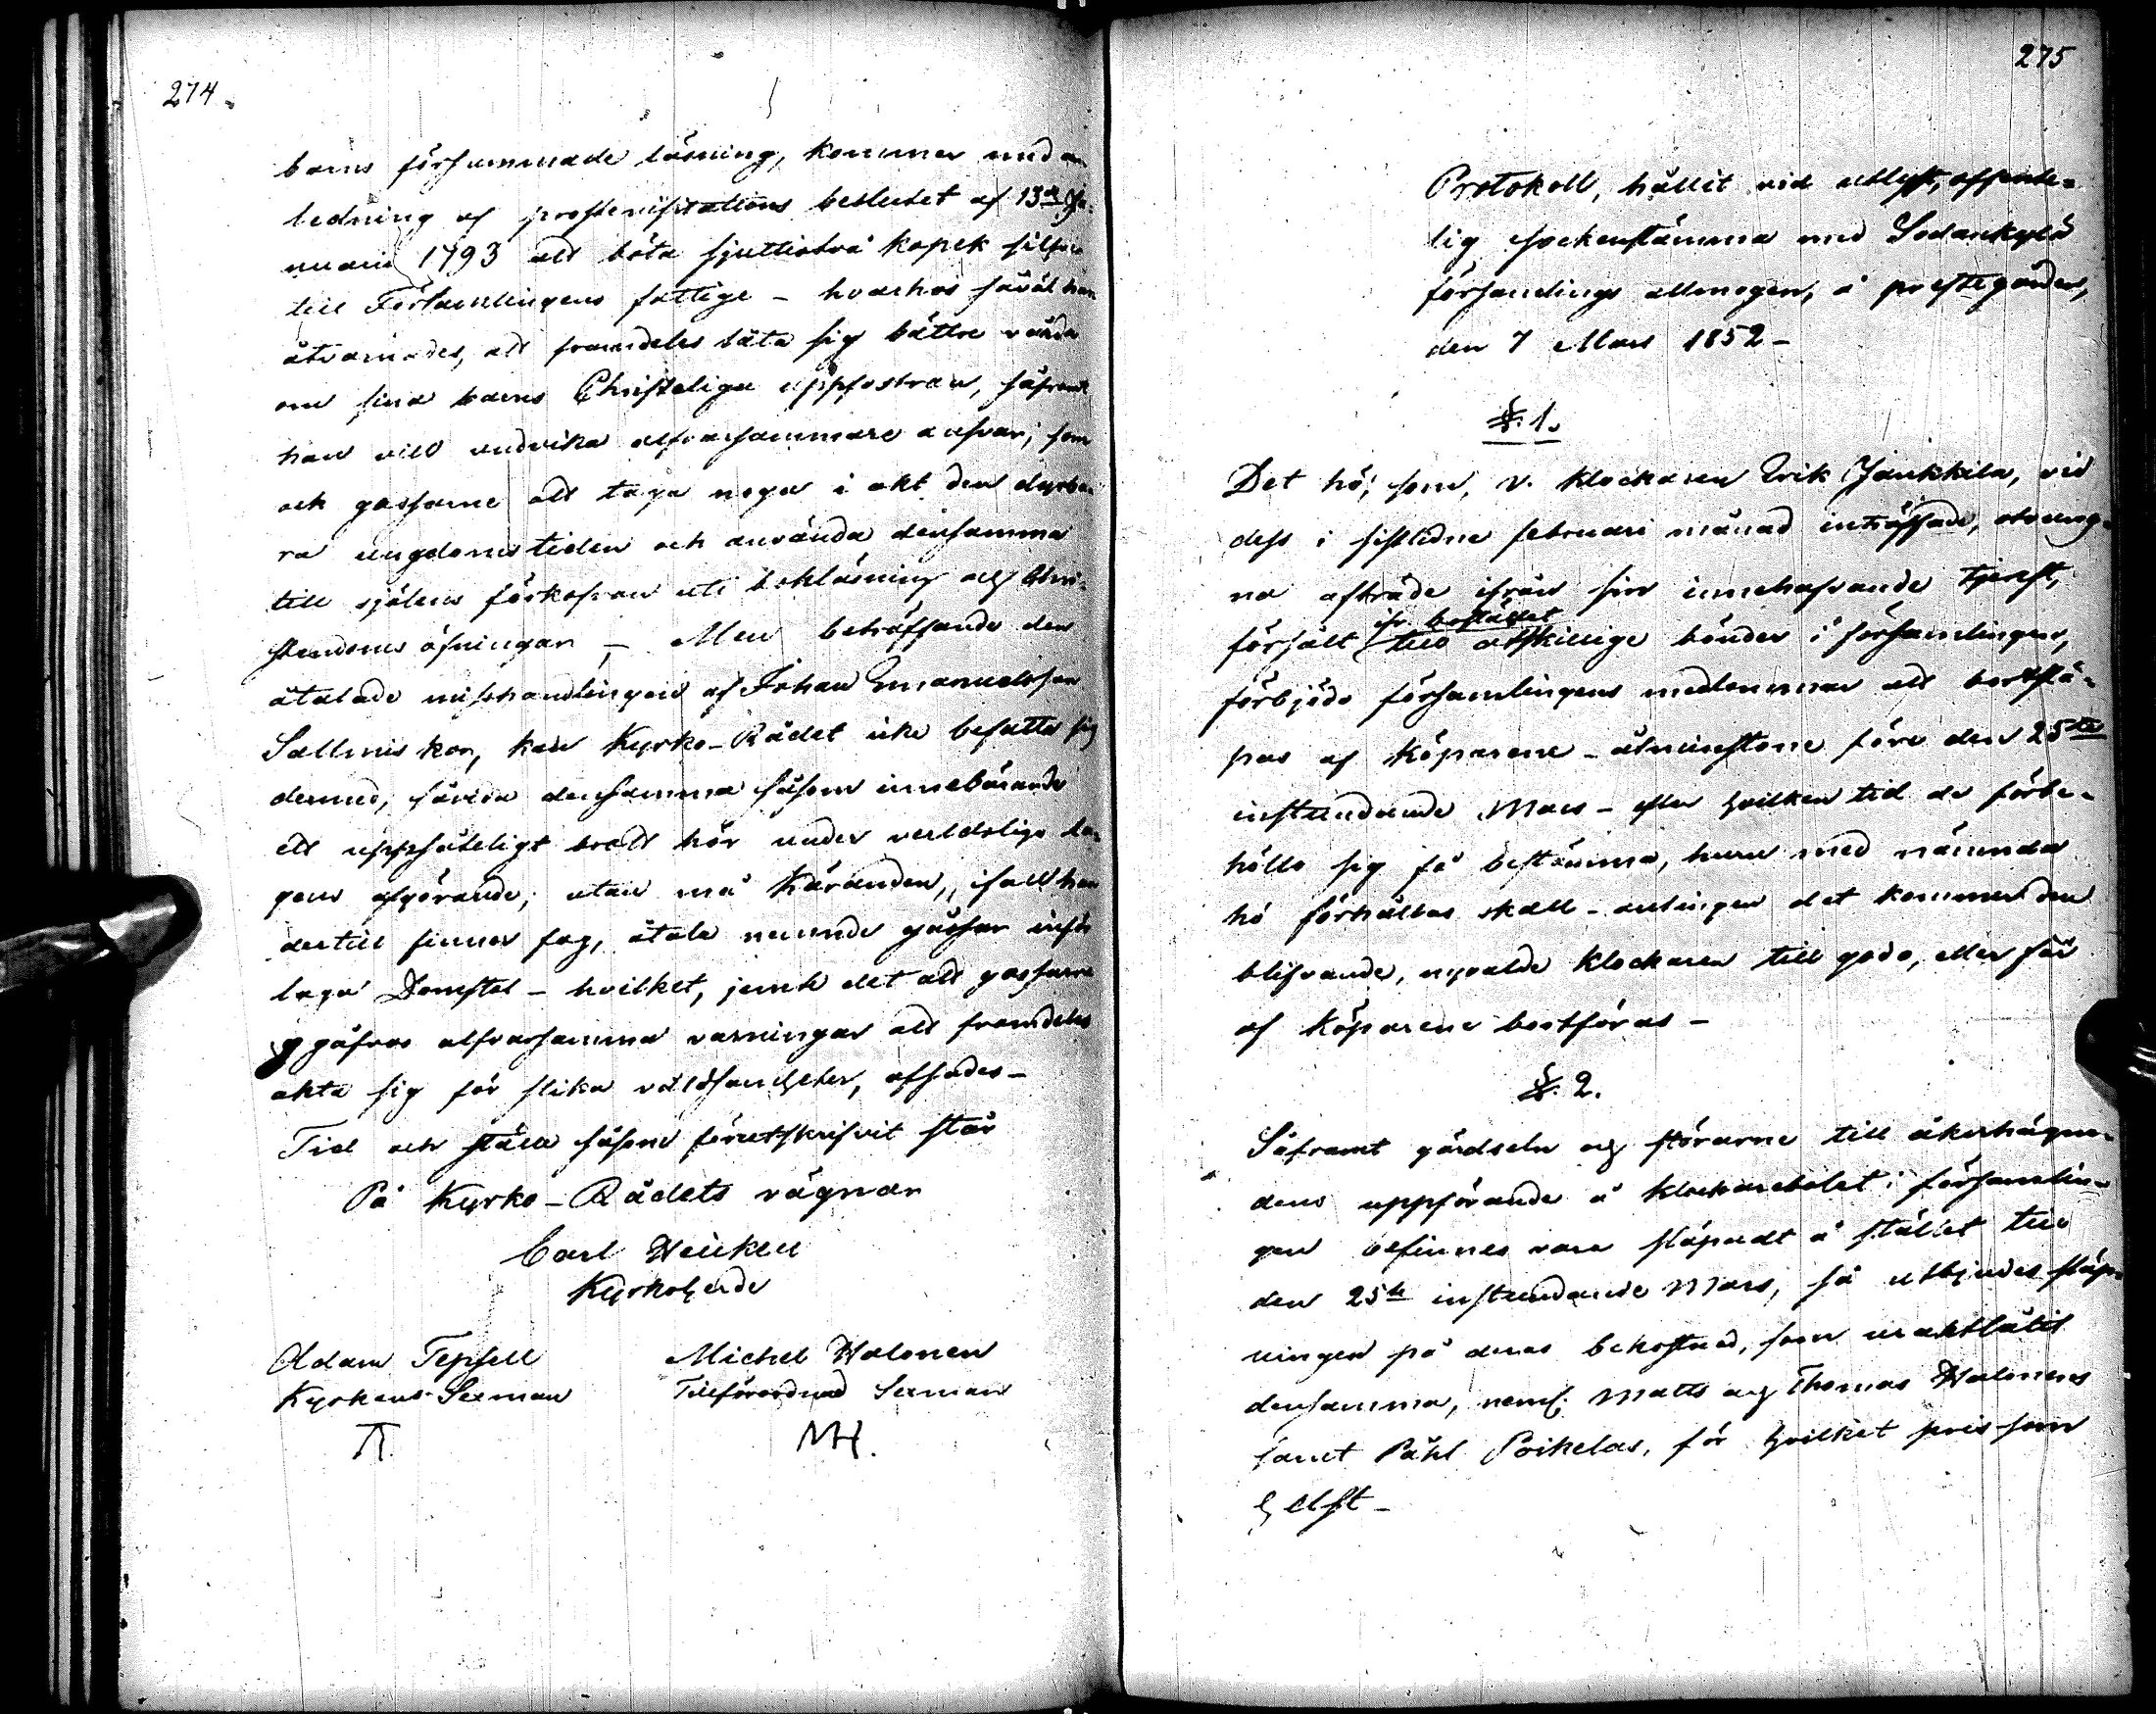 274.
barns försummade läsning, kommer med an
ledning af prostevisitations beslutet af 13de Ja-
nuarii 1793 att böta sjuttiotvå kopek silfver
till Församlingens fattige – hvarhos såväl han
åtvarnades, att framdeles låta sig bättre vårda
om sina barns Christeliga uppfostran, såframt
han vill undvika alfvarsammare ansvar, som
ock gossarne att taga noga i akt den dyrba-
ra ungdomstiden och använda densamma
till själens förkofran uti bokläsning och Chri-
stendoms öfningar – Men beträffande den
åtalade misshandlingen af Johan Emanuelsson
Sallmis kor, kan Kyrko-Rådet icke befatta sig
dermed, såvida densamma såsom innebärande
ett uppsåteligt brott hör under verldsliga la-
gens afgörande, utan må Käranden, ifall han
dertill finner fog, åtala nämnde gossar inför
laga Domstol – hvilket, jemte det att gossarne
gåfvos alfvarsamma varningar att framdeles
akta sig för slika våldsamheter, afsades –
Tid och ställe såsom förutskrifvit står
På Kyrko-Rådets vägnar
Carl Heickell
Kyrkoherde
Adam Tepsell Michel Halonen
Kyrkans Sexman Tillförordnad Sexman
AT. MH.
275
Protokoll, hållit vid utlyst, offente-
lig sockenstämma med Sodankylä
församlings allmogen, å prestegården,
den 7 Mars 1852 –
§. 1.
Det hö, som, v. klockaren Erik Jankkila, vid
dess i sistledne februari månad inträffade, otvung-
na afträde ifrån sin innehafvande tjenst,
ifr. bostället
försålt till åtskillige bönder i församlingen,
förbjöds församlingens medlemmar att bortslä-
pas af köparene – åtminstone före den 25te
instundande Mars – efter hvilken tid de förbe-
höllo sig få bestämma, huru med nämnda
hö förhållas skall – antingen det kommer den
blifvande, nyvalde klockaren till godo, eller får
af köparene bortföras –
§. 2.
Såframt gärdseln och störarne till åkerhägna-
dens uppförande å klockarebolet i församlin-
gen befinnes vara släpadt å stället till
den 25te instundande Mars, så utbjudes släp-
ningen på deras bekostnad, som uraktlåtit
densamma, neml. Matts och Thomas Halonens
samt Påhl Poikelas, för hvilket pris som
helst –